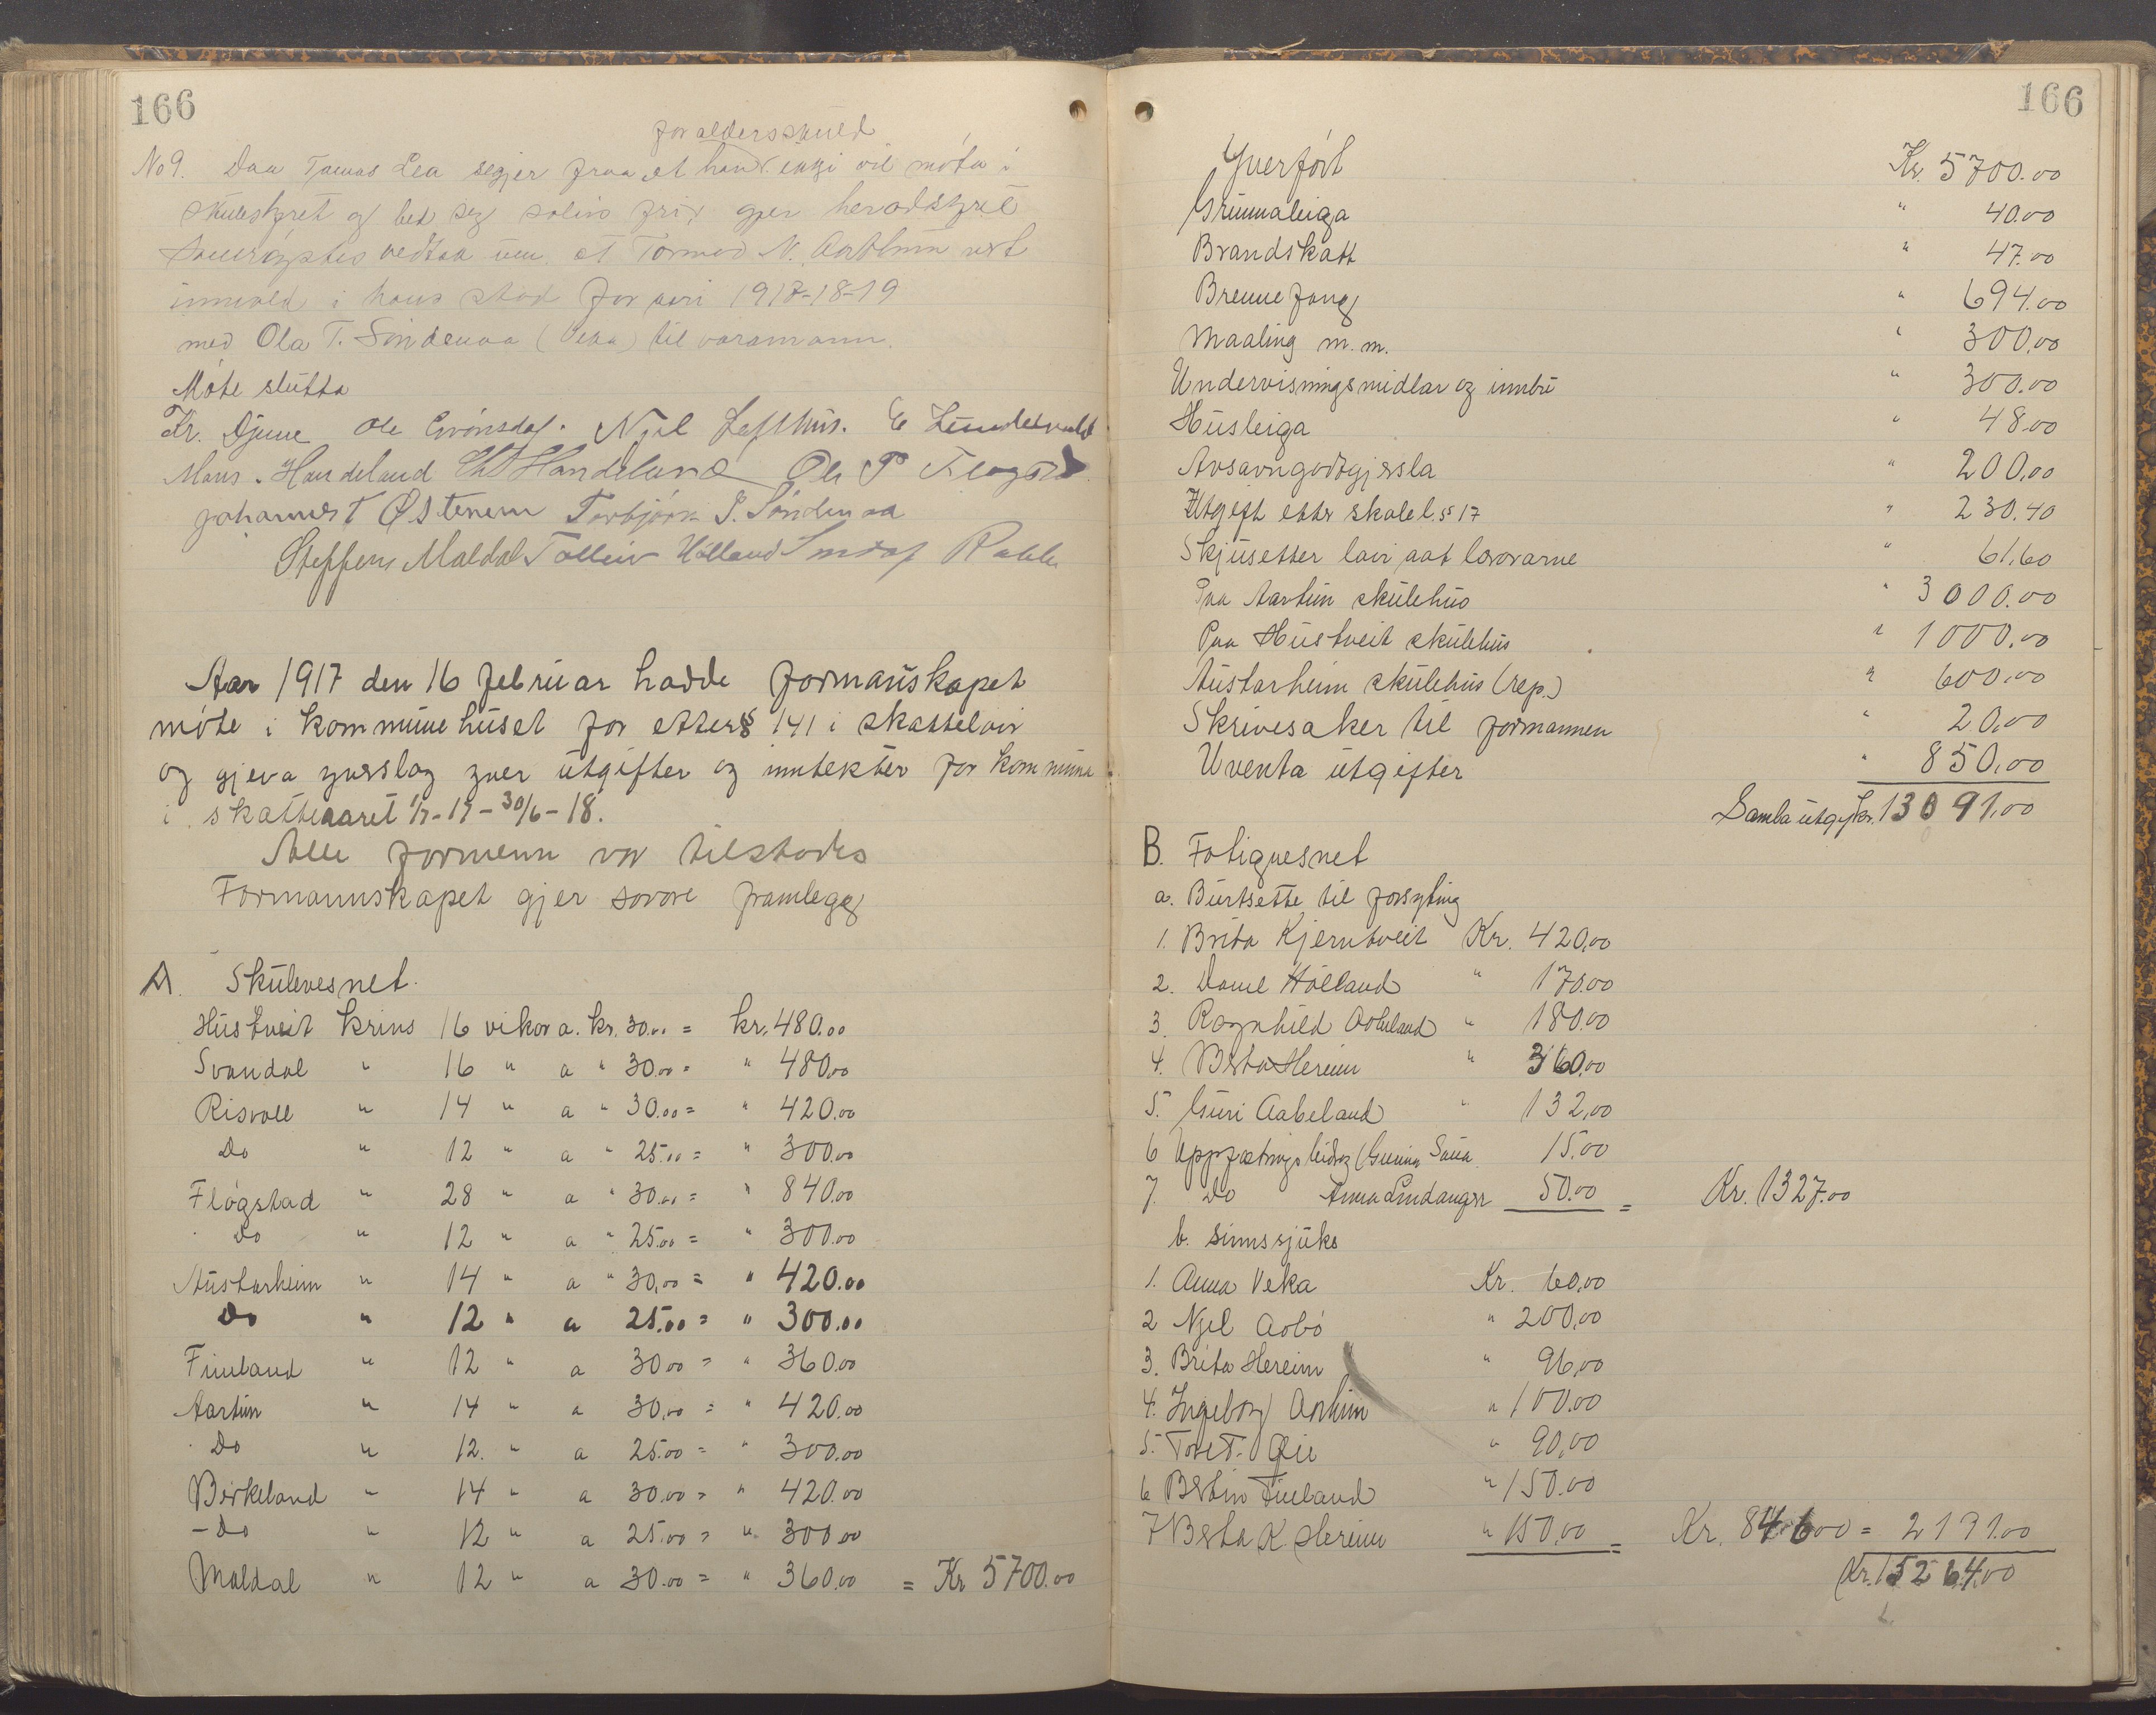 166
for aldersskuld
No 9. Daa Tomas Lea segjer fraa at han enggi vil møta i
skulestyret og bed seg soleis fri, gjer heradstyret
samrøystes vedtak um at Tormod N. Aartun vert
innvald i hans stad for aari 1917-18-19
med Ola T. Søndenaa (Veka) til varamann.
Møte slutta
Kr. Djuve Ole Grønsdal. Njel Lofthus. E
Mons. Handeland Handeland Ole P Flogstad
Johannes T Østerem Torbjørn S. Søndenaa
Steffen Maldal Tolleiv Hålland Rabbe
Aar 1917 den 16 februar hadde formanskapet
møte i kommunehuset for etter § 141 i skattelovi
og gjeva yverslag yver utgifter og inntekter for kommuna
i skatteaaret 1/7-17-30/6-18.
Alle formenn var tilstades
Formannskapet gjer sovore framlegg
A. Skulevesnet.
Hustveit krins 16 vikor a. kr. 30.00 = kr. 480.00
Svandal " 16 " a " 30.00 = " 480.00
Risvoll " 14 " a " 30.00 = " 420.00
Do " 12 " a " 25.00 = " 300.00
Fløgstad " 28 " a " 30.00 = " 840.00
Do " 12 " a " 25.00 = " 300.00
Austarheim " 14 " a " 30.00 = " 420.00
Do " 12 " a 25.00 = " 300.00
Finnland " 12 " a 30.00 = " 360.00
Aartun " 14 " a 30.00 = " 420.00
Do " 12. " a 25.00 = " 300.00
Birkeland " 14 " a 30.00 = " 420.00
- Do " 12 " a 25.00 = " 300.00
Maldal " 12 " a 30.00 = " 360.00 = Kr 5700.00
166
Yverført Kr. 5700.00
Grunnaleiga " 40.00
Brandskatt " 47.00
Brennefang " 694.00
Maaling m.m. " 300.00
Undervisningsmidlar og innbu " 300.00
Husleiga " 48.00
Avsavngodtgjersla " 200.00
Utgift etter skulel. § 17 " 230.40
Skjusetter lovi aat lærarne " 61.60
Paa Aartun skulehus " 3000.00
Paa Hustveit skulehus " 1000.00
Austarheim skulehus (rep.) " 600.00
Skrivesaker til formannen " 20.00
Uventa utgifter " 850.00
Samla utgift kr. 13091.00
B. Fatigvesnet
a. Burtsette til forsyting
1. Brita Kjerntveit Kr. 420.00
2. Hålland " 170.00
3. Ragnhild Aabeland " 180.00
4. Berta Hereim " 360.00
5. Guri Aabeland " 132.00
6 Uppfostringsbidrag (Gunna Saua 15.00
7. Do Anna Lindanger 50.00 = Kr. 1327.00
b. sinnssjuke
1. Anna Veka Kr. 60.00
2 Njel Aabø " 200.00
3. Brita Hereim " 96.00
4. Ingeborg Aartun " 100.00
5. Tore T. Øie " 90.00
6 Bertin Finland " 150.00
7 Berta K. Hereim " 150.00 = Kr. 846.00 = 2191.00
Kr. 15264.00